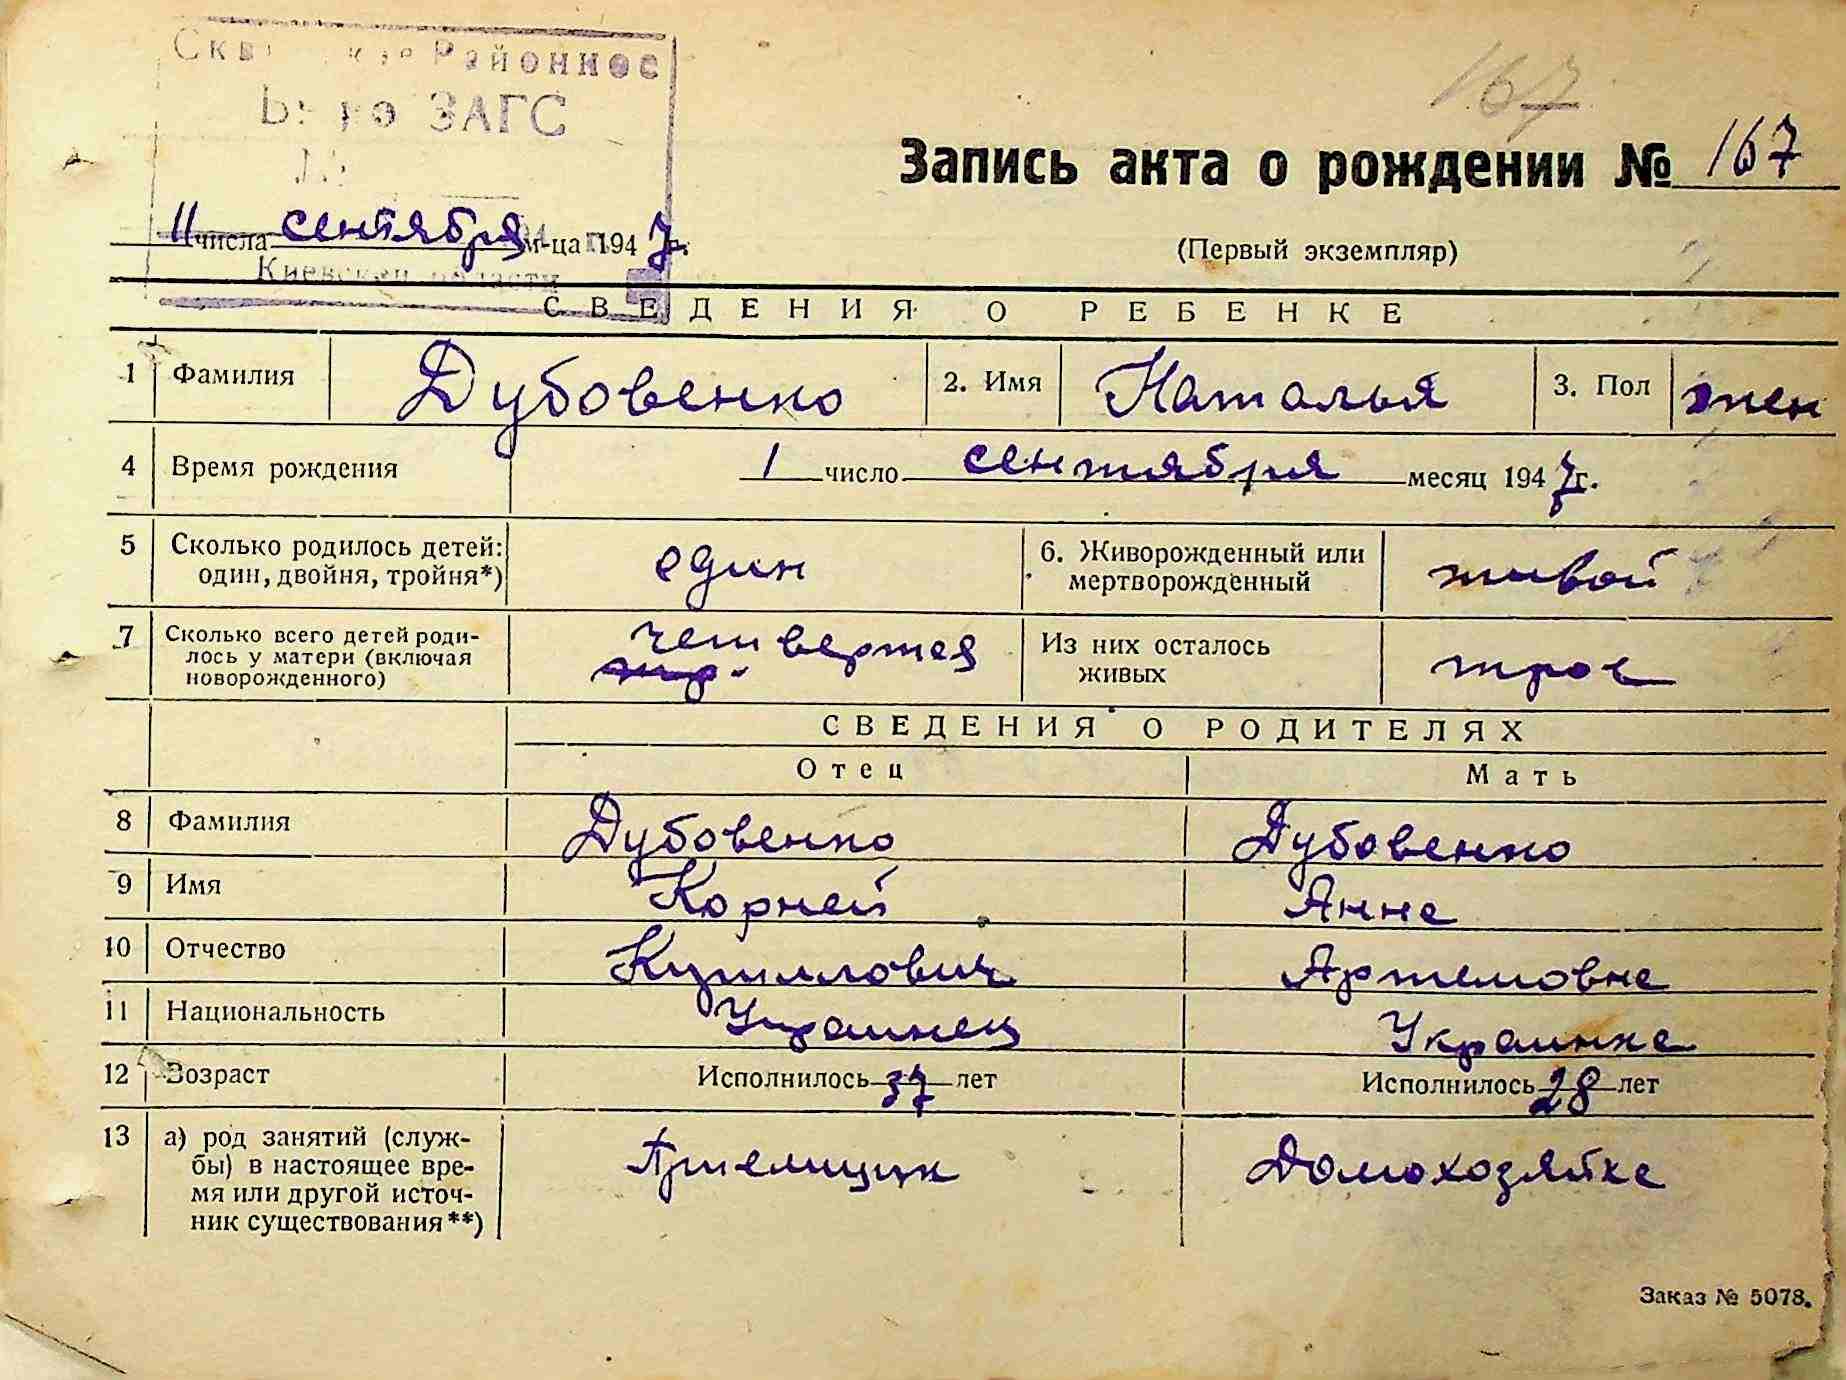 Районное
ЗАГС
167
Запись акта о рождении № 167
11 числа сентября м-ца 1947 г.
(Первый экземпляр)
Киевской области
СВЕДЕНИЯ О РЕБЕНКЕ
1 Фамилия Дубовенко 2. Имя Наталья 3. Пол жен
4 Время рождения 1 число сентября месяц 1947 г.
5 Сколько родилось детей: один, двойня, тройня*) один 6. Живорожденный или мертворожденный живой
7 Сколько всего детей роди-
лось у матери (включая
новорожденного) четвертая Из них осталось живых трое
СВЕДЕНИЯ О РОДИТЕЛЯХ
Отец Мать
8 Фамилия Дубовенко Дубовенко
9 Имя Корней Анна
10 Отчество Артемовна
11 Национальность Украинец Украинка
12 Возраст Исполнилось 37 лет Исполнилось 28 лет
13 а) род занятий (служ-
бы) в настоящее вре-
мя или другой источ-
ник существования**) Приемщик Домохозяйка
Заказ № 5078.